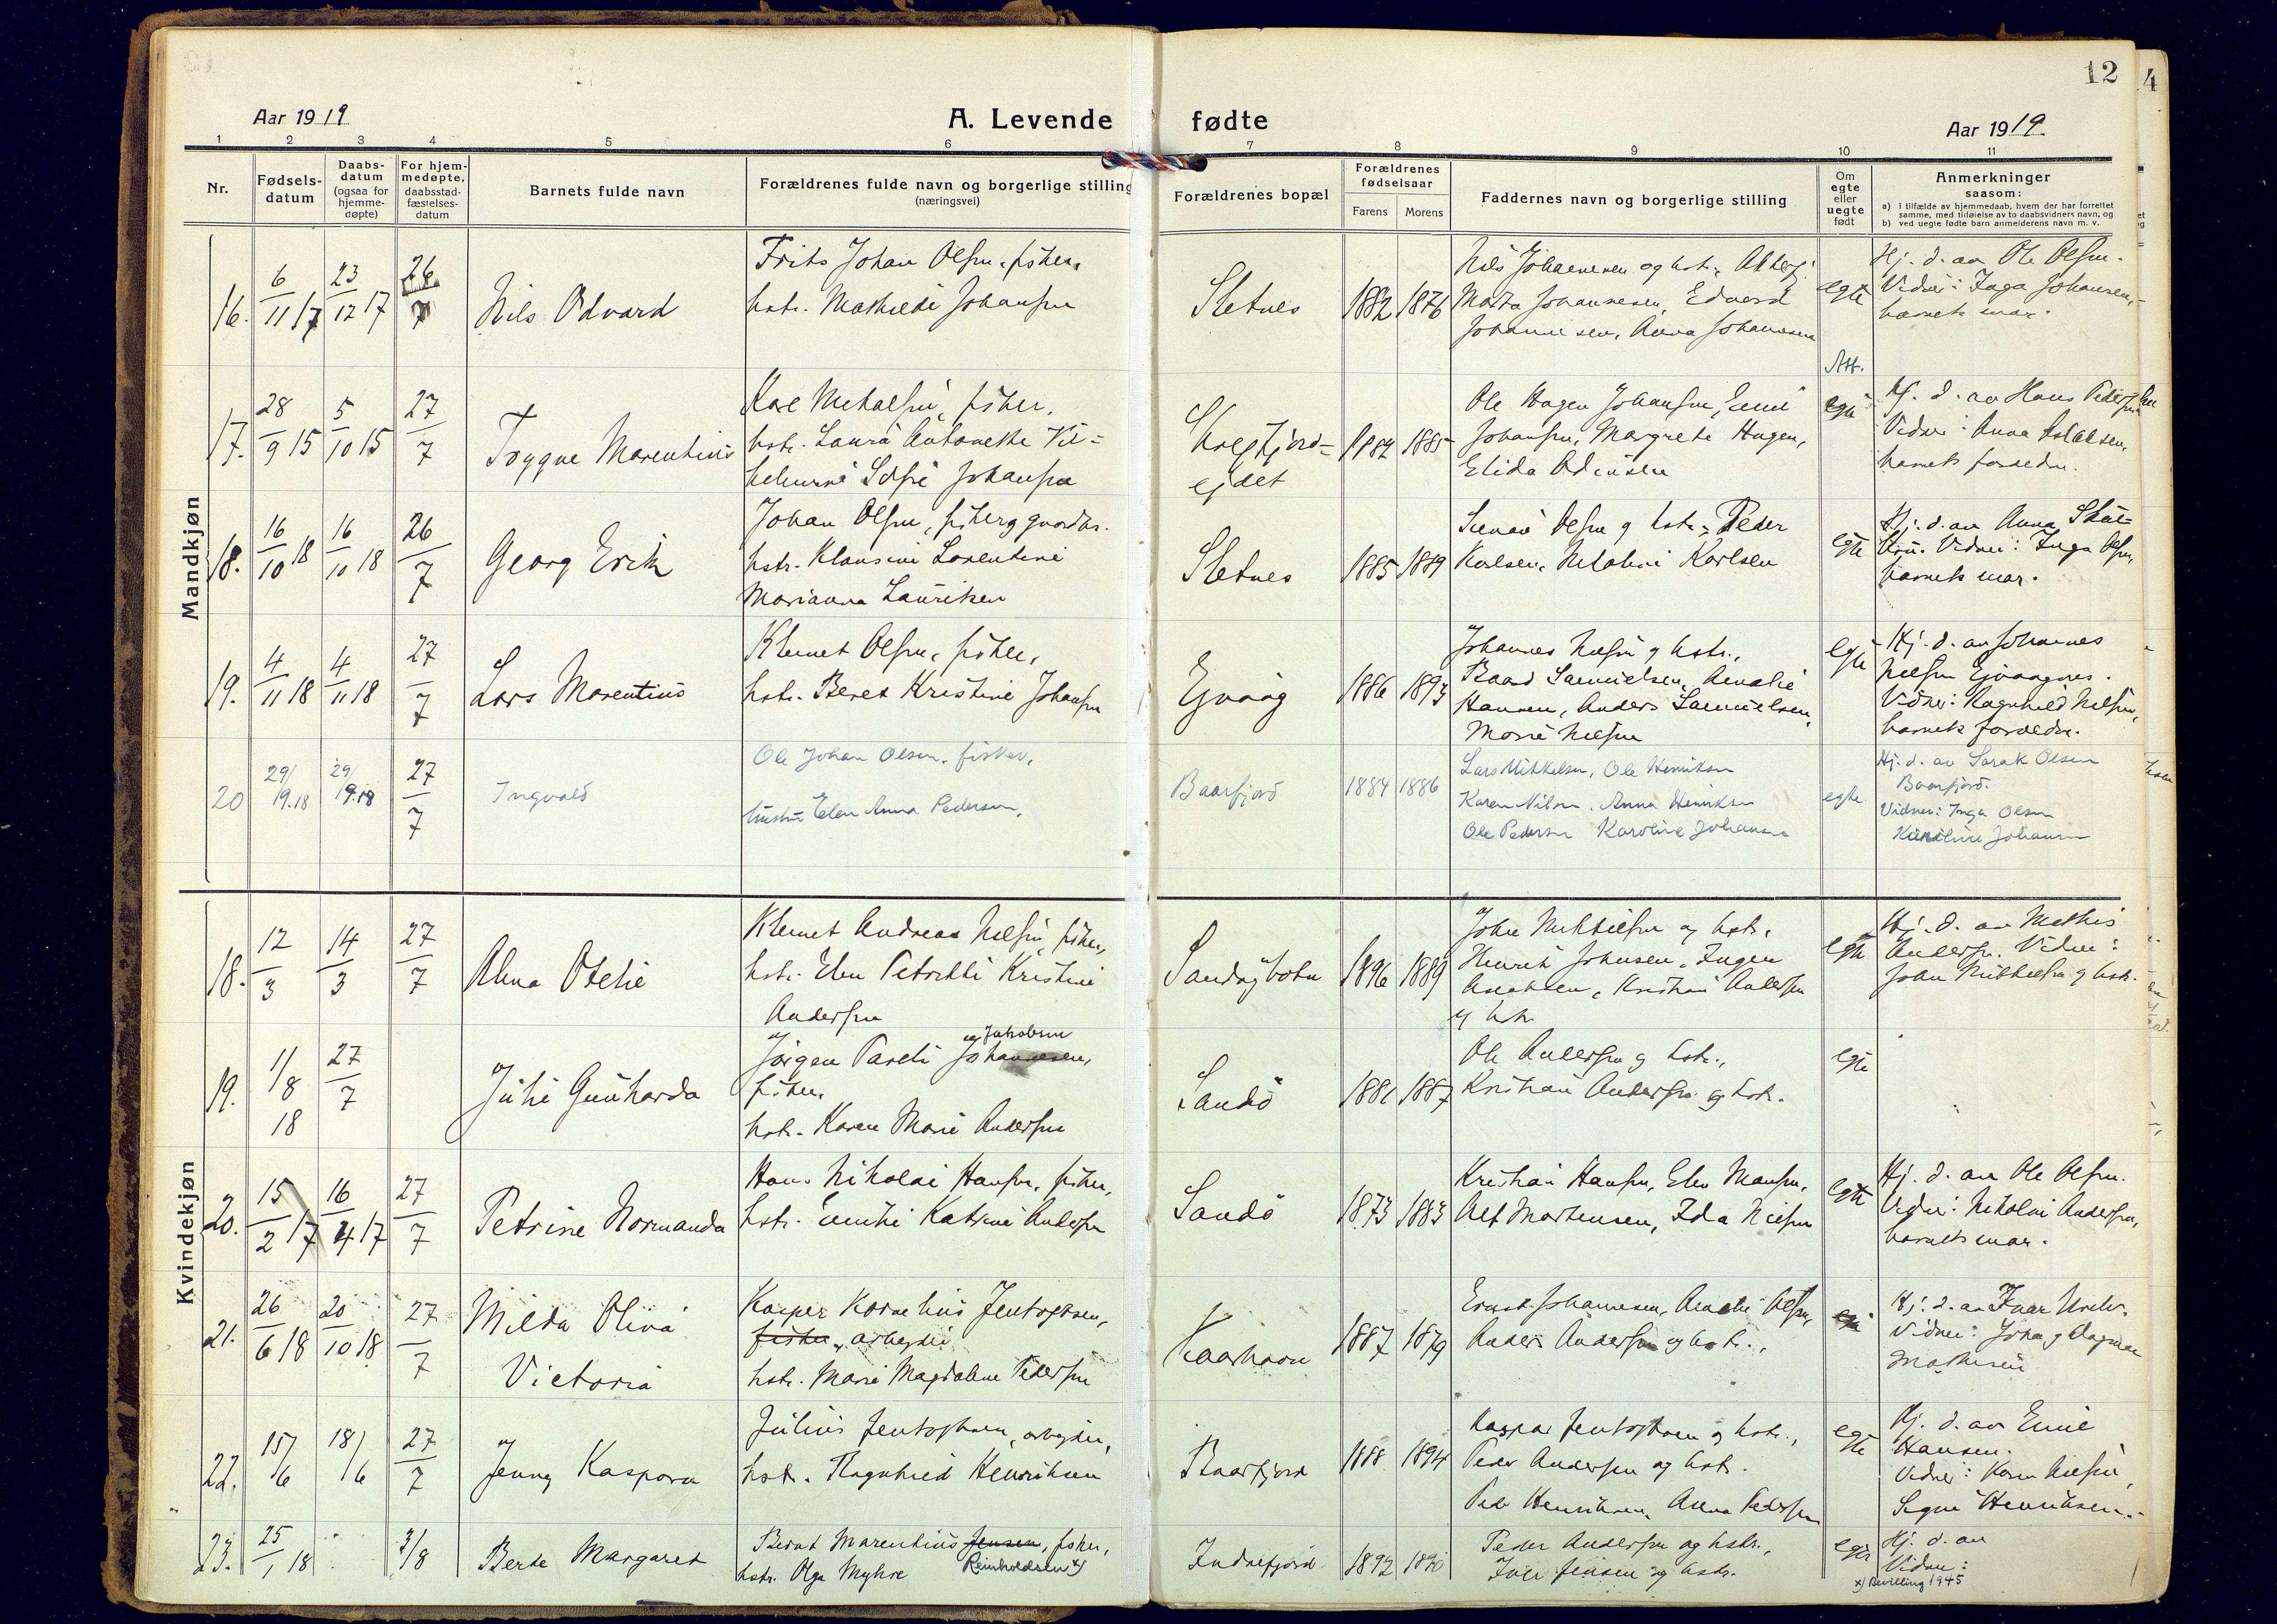 12
4
Aar 1919
A. Levende
fødte
Aar 1919.
1 2 3 4 5 6 7 8 9 10 11
Nr.
Fødsels-
datum
Daabs-
datum
(ogsaa for
hjemme-
døpte)
For hjem-
medøpte,
daabsstad-
fæstelses-
datum
Barnets fulde navn
Forældrenes fulde navn og borgerlige stilling
(næringsvei)
Forældrenes bopæl
Forældrenes
fødselsaar
Farens Morens
Faddernes navn og borgerlige stilling
Om
egte
eller
uegte
født
Anmerkninger
saasom:
a) i tilfælde av hjemmedaab, hvem der har forrettet
samme, med tilføielse av to daabsvidners navn, og
b) ved uegte fødte barn anmelderens navn m. v.
Mandkjøn
16. 6/11 17 23/12 17 26/7
Nils Odvard
Frits Johan Olsen, fisker,
hstr. Mathilde Johansen
Sletnes 1882 1876
Nils Johannesen og hstr.,
Marta Johannesen, Edvard
Johannesen, Anna Johannesen
egte
Hj. d. av Ole Olsen.
Vidner: Inga Johansen,
barnets mor.
17. 28/9 15 5/10 15 27/7
Tryggve Marentius
Karl Mikalsen, fisker,
hstr. Laura Antonette Vil=
helmine Sofie Johansen
ejdet 1884 1885
Ole Hagen Johansen, Emil
Johansen, Margrete Hagen,
Elida
egte
Hj. d. av Hans Pedersen
Vidner: Anna
barnets forældre.
18. 16/10 18 16/10 18 26/7
Georg Erik
Johan Olsen, fisker og gaardbr.
hstr. Klausine Lorentine
Marianna Lauritsen
Sletnes 1885 1889
Olsen og hstr., Peder
Karlsen, Karlsen
egte
Hj. d. av Anna
Vidner: Inga Olsen,
barnets mor.
19. 4/11 18 4/11 18 27/7
Lars Marentius
Klemet Olsen, fisker,
hstr. Beret Kristine Johansen
Ejvaag 1886 1893
Johannes Nilsen og hstr.,
Baard Samuelsen, Amalie
Hansen, Anders Samuelsen,
Marie Nilsen
egte
Hj. d. av Johannes
Nilsen Ejvaagnes.
Vidner: Ragnhild Nilsen,
barnets forældre.
20 29/9.18 29/9.18 27/7
Ingvald
Ole Johan Olsen, fisker,
hustru Elen Anna Pedersen,
Baarfjord 1884 1886
Lars Mikkelsen, Ole Henriksen
Karen Nilsen. Anna Henriksen
Ole Pedersen Karoline Johansen
egte
Hj. d. av Sarak Olsen
Baarfjord.
Vidner: Inga Olsen
Karoline Johansen
Kvindekjøn
18. 12/3 14/3 27/7
Alma Otelie
Klemet Andreas Nilsen, fisker,
hstr. Elen Petrikke Kristine
Andersen
Sandøbotn 1896 1889
John Mikkelsen og hstr.
Henrik Johnsen, Inger
Kristian Andersen
og hstr.
egte
Hj. d. av Mathis
Andersen. Vidner:
John Mikkelsen og hstr.
19. 11/8 18 27/7
Julie Gunharda
Jakobsen
Jørgen Pareli Johannesen,
fisker,
hstr. Karen Marie Andersen
Sandø 1881 1887
Ole Andersen og hstr.,
Kristian Andersen og hstr.
egte
20. 15/2 17 16/4 17 27/7
Petrine Normanda
Hans Nikolai Hansen, fisker,
hstr. Emilie Katrine Andersen
Sandø 1873 1883
Kristian Hansen, Elen Hansen,
Alf Mortensen, Ida Nilsen
egte
Hj. d. av Ole Olsen.
Vidner: Nikolai Andersen,
barnets mor.
21. 26/6 18 20/10 18 27/7
Milda Oliva
Victoria
Kasper Kornelius Jentoftsen,
fisker, arbejder
hstr. Marie Magdalene Pedersen
Kaarhavn 1887 1879
Ernst Johannesen, Amalie Olsen,
Anders Andersen og hstr.,
egte
Hj. d. av Ivar
Vidner: Johan og Dagmar
Mathisen
22. 15/6 18/6 27/7
Jenny Kaspara
Julius Jentoftsen, arbejder,
hstr. Ragnhild Henriksen
Baarfjord 1888 1894
Kaspar Jentoftsen og hstr.,
Peder Andersen og hstr.
Peder Henriksen, Anna Pedersen
egte
Hj. d. av Emil
Hansen.
Vidner: Karen Nilsen,
Signe Henriksen.
23. 25/1 18 3/8
Berte Margaret
Bernt Marentius Jensen, fisker,
hstr. Olga Myhre Reinholdsen x)
Indrefjord 1892 1890
Peder Andersen og hstr.,
Iver Jensen og hstr.
egte
Hj. d. av
Vidner:
x) Bevilling 1945